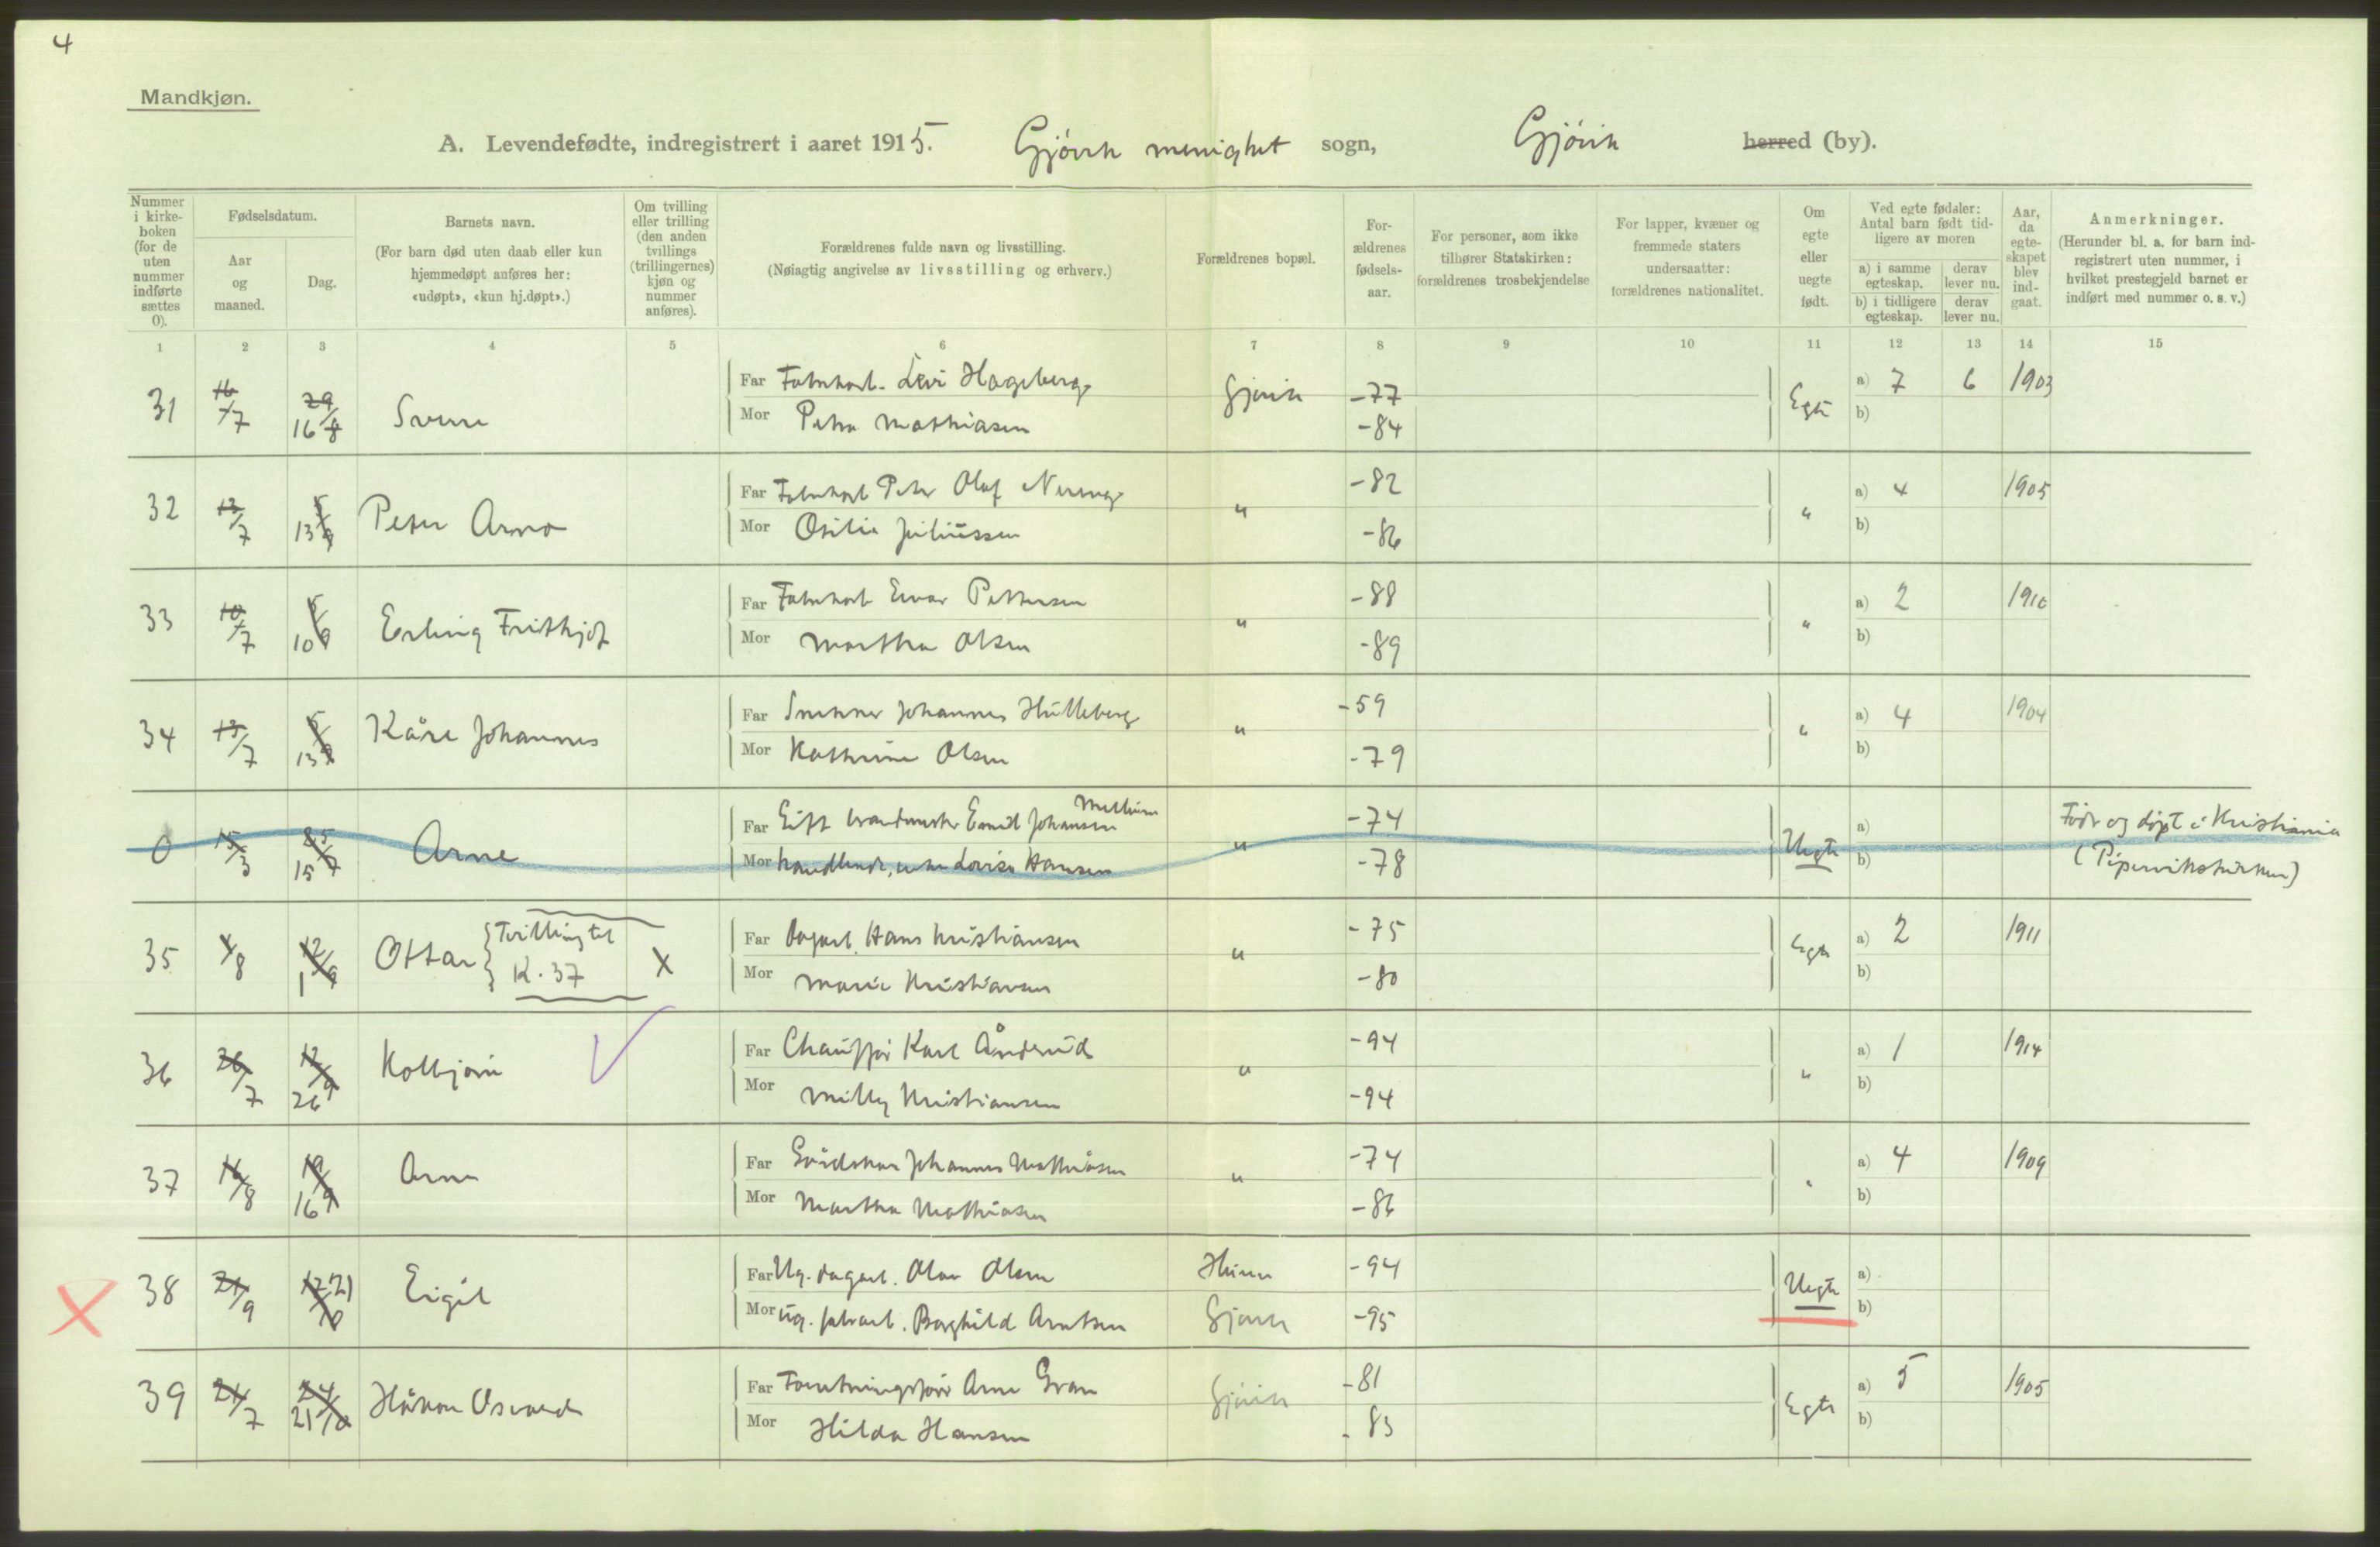 4
Mandkjøn.
A. Levendefødte, indregistrert i aaret 1915. Gjövik menighet sogn, Gjövik herred (by).
Nummer i kirke- boken (for de uten nummer indførte sættes 0).
Fødselsdatum.
Aar og maaned.
Dag.
Barnets navn.
(For barn død uten daab eller kun hjemmedøpt anføres her: «udøpt», «kun hj.døpt».)
Om tvilling eller trilling (den anden tvillings (trillingernes) kjøn og nummer anføres).
Forældrenes fulde navn og livsstilling.
(Nøiagtig angivelse av livsstilling og erhverv.)
Forældrenes bopæl.
For- ældrenes fødsels- aar.
For personer, som ikke tilhører Statskirken: forældrenes trosbekjendelse
For lapper, kvæner og fremmede staters undersaatter: forældrenes nationalitet.
Om egte eller uegte født.
Ved egte fødsler: Antal barn født tid- ligere av moren
a) i samme egteskap.
derav lever nu.
b) i tidligere egteskap.
derav lever nu.
Aar, da egte- skapet blev ind- gaat.
Anmerkninger.
(Herunder bl. a. for barn ind- registrert uten nummer, i hvilket prestegjeld barnet er indført med nummer o. s. v.)
1 2 3 4 5 6 7 8 9 10 11 12 13 14 15
31 16/7 29/8 16 Sverre Far Fabrikarb. Levi Hageberg Gjövik -77 Egte a) 7 6 1903
Mor Petra Mathiasen -84 b)
32 13/7 5/9 13 Peter Arno Far Fabrikarb Peter Olaf " -82 " a) 4 1905
Mor Otilie Juliussen -86 b)
33 10/7 5/9 10 Erling Frithjof Far Fabrikarb Einar Pettersen " -88 " a) 2 1910
Mor Martha Olsen -89 b)
34 13/7 5/9 13 Kåre Johannes Far Snekker Johannes Hulleberg " -59 " a) 4 1904
Mor Kathrine Olsen -79 b)
0 15/3 25/7 15 Arne Far Gift brandmester Emil Johansen " -74 Uegte a) Född og döpt i Kristiania
Mor handlende, enke Lovise Hansen -78 b) (Piperviksкirken)
35 1/8 12/9 1 Ottar Tvilling til K. 37 X Far Dagarb. Hans Kristiansen " -75 Egte a) 2 1911
Mor Marie Kristiansen -80 b)
36 26/7 12/9 26 Kolbjörn Far Chaufför Karl Ånderud " -94 " a) 1 1914
Mor Milly Kristiansen -94 b)
37 16/8 19/9 16 Arne Far Gårdskar Johannes Mathiasen " -74 " a) 4 1909
Mor Martha Mathiasen -86 b)
38 21/9 17/10 21 Eigil Far Ug. dagarb. Olav Olsen Hunn -94 Uegte a)
Mor ug. fabrarb. Borghild Arntsen Gjövik -95 b)
39 21/7 24/10 21 Håkon Osvand Far Forretningsförer Arne Gran Gjövik -81 Egte a) 5 1905
Mor Hilda Hansen -83 b)